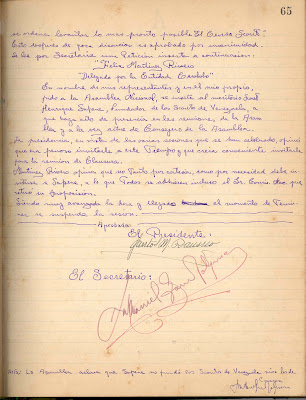 65
se ordene levantar lo mas pronto posible "El Censo Scout"
Esto después de poca discusion es aprobado por unanimidad.
Se lee por Secretaria una Peticion inserta a continuacion:
"Fidia Martinez Rivero
Delegado por la Entidad Carabobo"
En nombre de mis representantes y en el mio propio,
pido a la Asamblea Nacional, se invite al maritimo José
Henrique Safar, Fundador de los Scouts de Venezuela, a
que haga acto de presencia en las reuniones, de la Asam
blea y a la vez actue de Consejero de la Asamblea
La presidencia, en vista de las varias sesiones que se han celebrado, opina
que era penoso invitarle a este Tiempo y que creia conveniente invitarle
para la reunion de Clausura.
Martinez Rivero opina que no tanto por cortesia, como por necesidad debe in
vitarse a Safar, a lo que Todos se adhieren incluso el Sr. que
retira su proposicion.
Siendo muy avanzada la hora y llegado el momento de Termi-
nar se suspende la sesion.
Aprobada.
El Presidente:
El Secretario:
Nota: La Asamblea aclara que Safar no fundó los Scouts de Venezuela sino los de